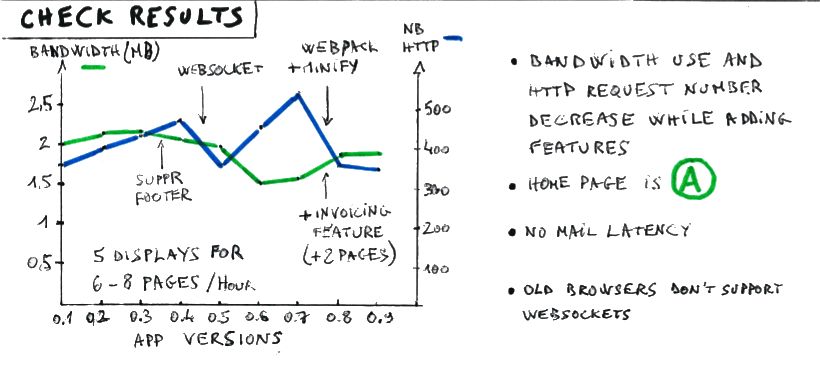 CHECK RESULTS
BANDWIDTH (MB)
NB
HTTP
WEBSOCKET
WEBPACK
+MINIFY
2,5
2
1,5
1
0,5
500
400
300
200
100
SUPPR
FOOTER
+INVOICING
FEATURE
(+2 PAGES)
5 DISPLAYS FOR
6-8 PAGES/HOUR
0.1 0.2 0.3 0.4 0.5 0.6 0.7 0.8 0.9
APP VERSIONS
• BANDWIDTH USE AND
HTTP REQUEST NUMBER
DECREASE WHILE ADDING
FEATURES
• HOME PAGE IS A
• NO MAIL LATENCY
• OLD BROWSERS DON'T SUPPORT
WEBSOCKETS